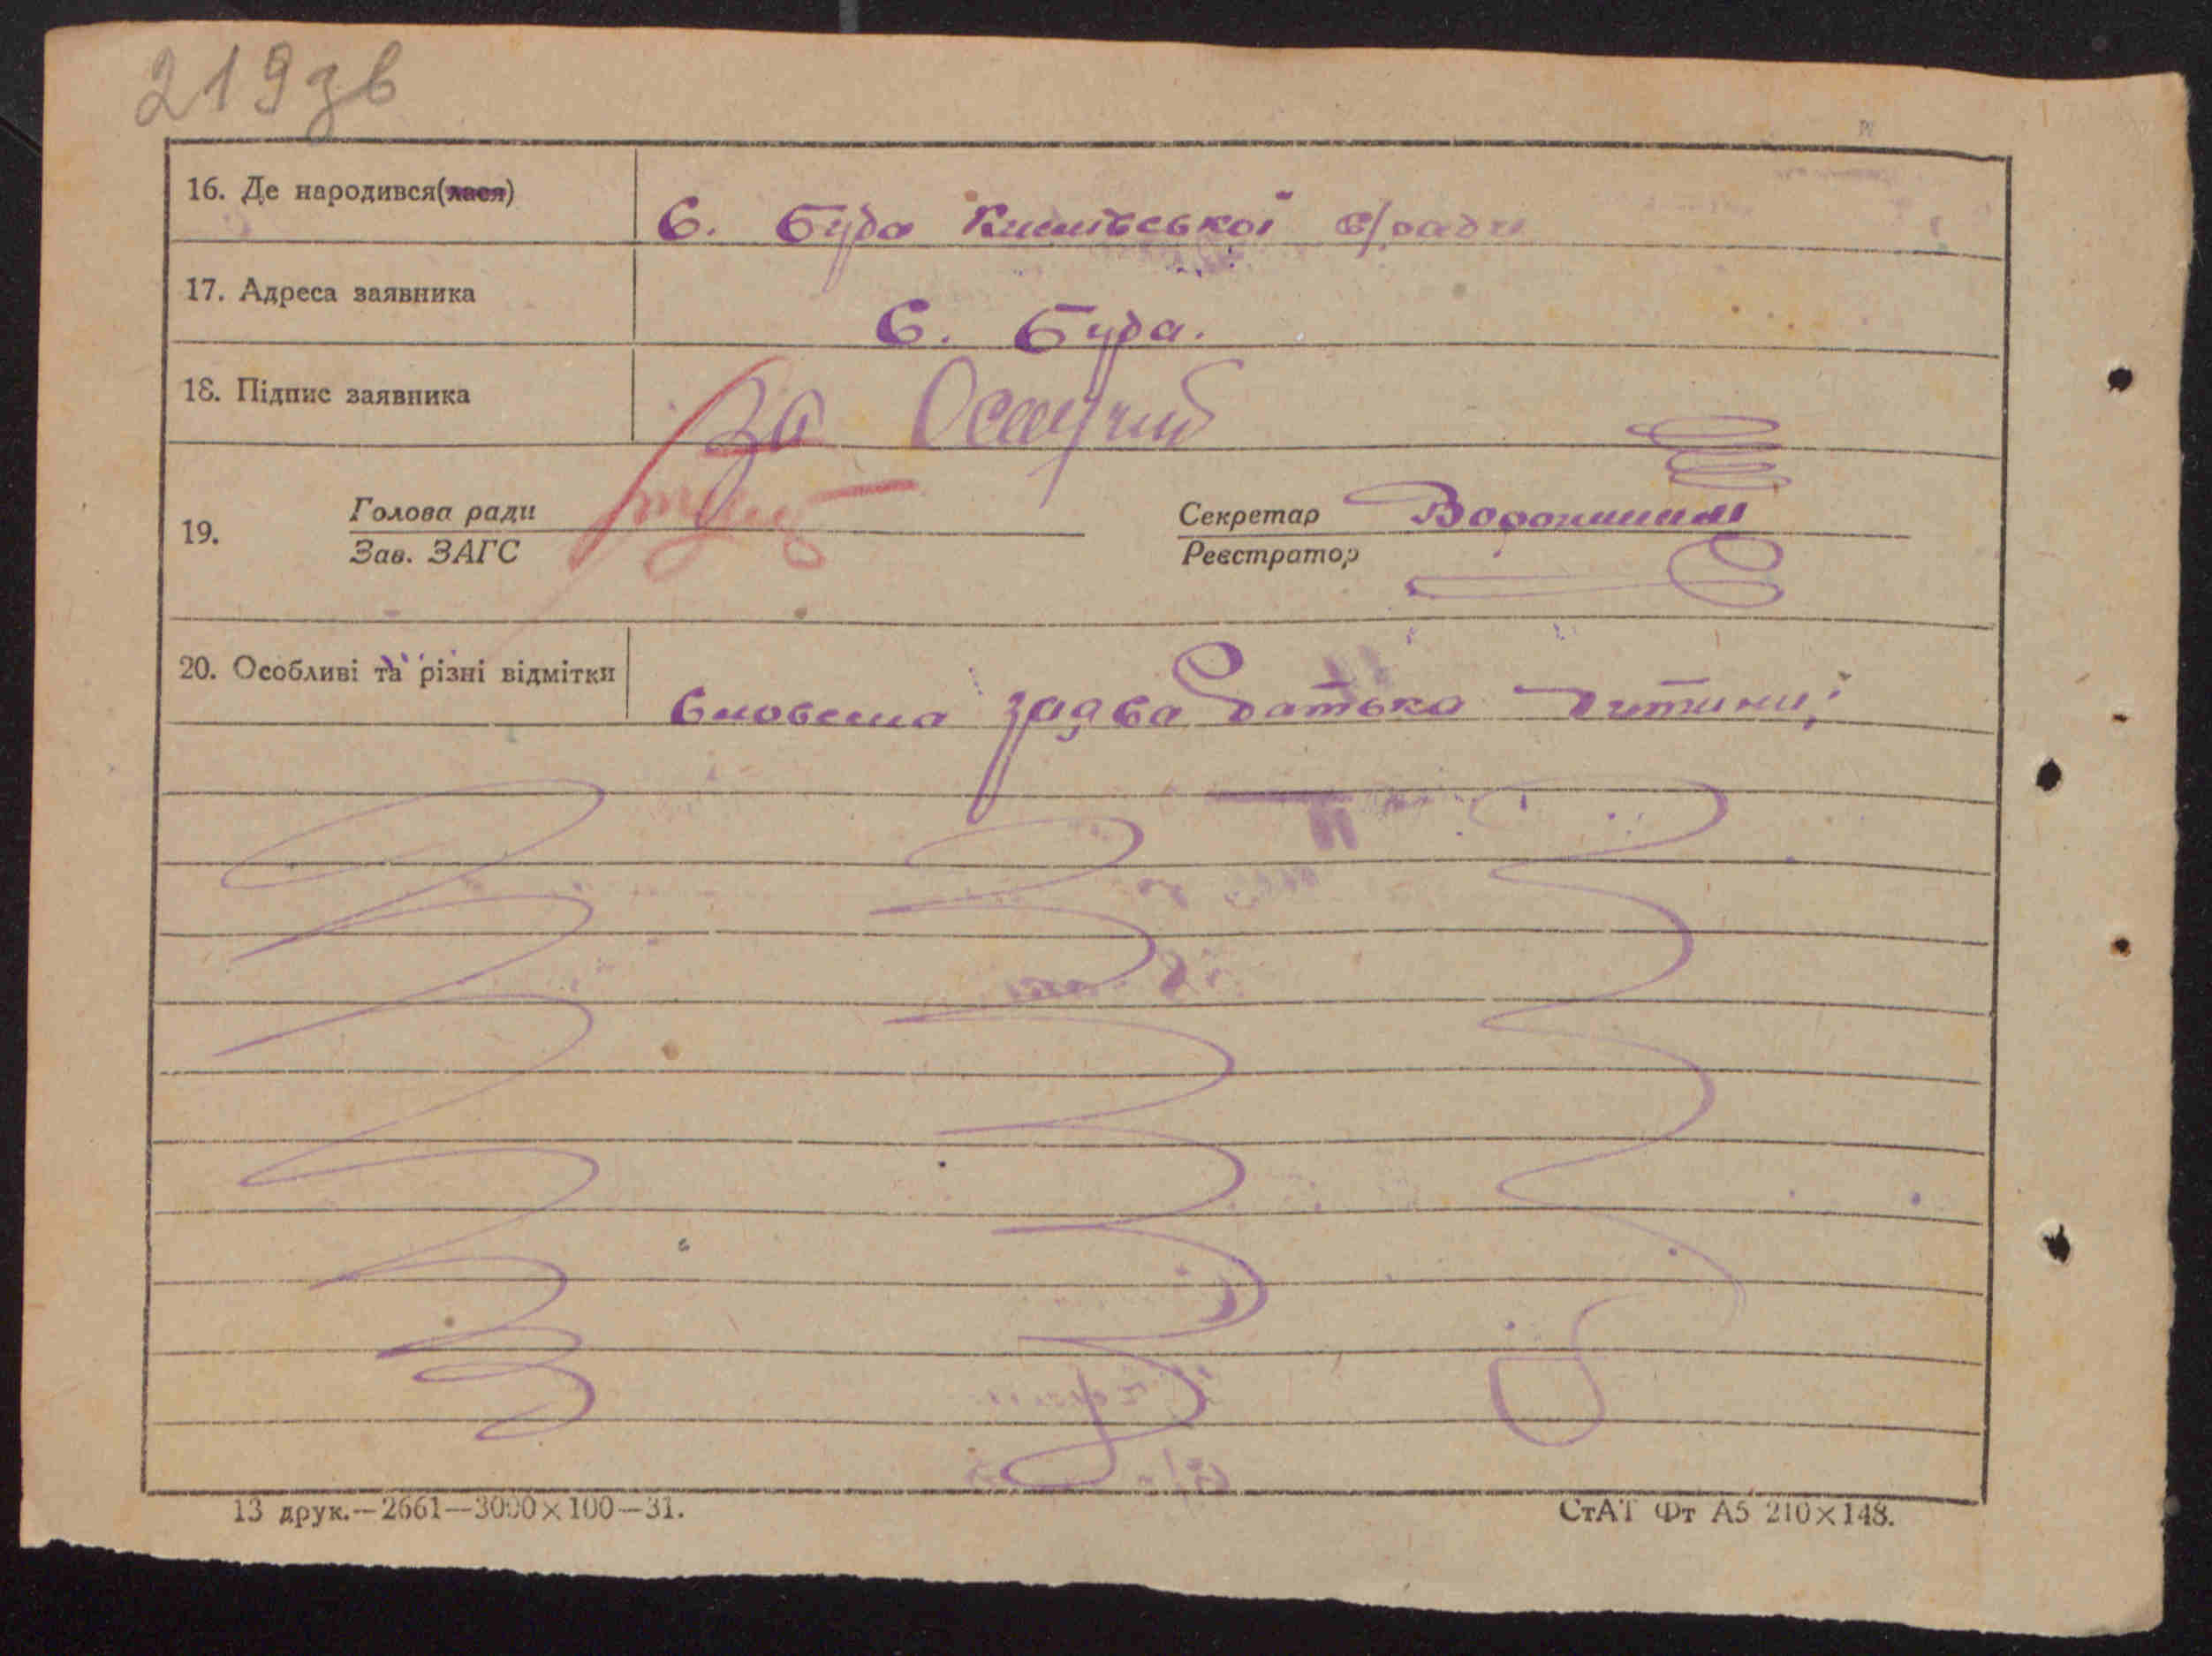 219зв
16. Де народився(лася) С. Буда Кишівської с/ради
17. Адреса заявника С. Буда.
18. Підпис заявника За
19. Голова ради Секретар
Зав. ЗАГС Реєстратор
20. Особливі та різні відмітки Словесна заява батька дитини;
13 друк.—2661—3000×100—31. СтАТ Фт А5 210×148.